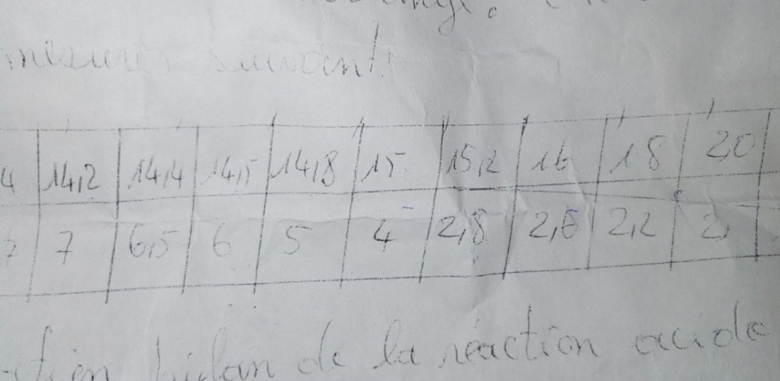 mesures suivant
4 14,2 14,4 14,5 14,8 15 15,2 16 18 20
7 6,5 6 5 4 2,8 2,2 2,
bilan de la réaction acide